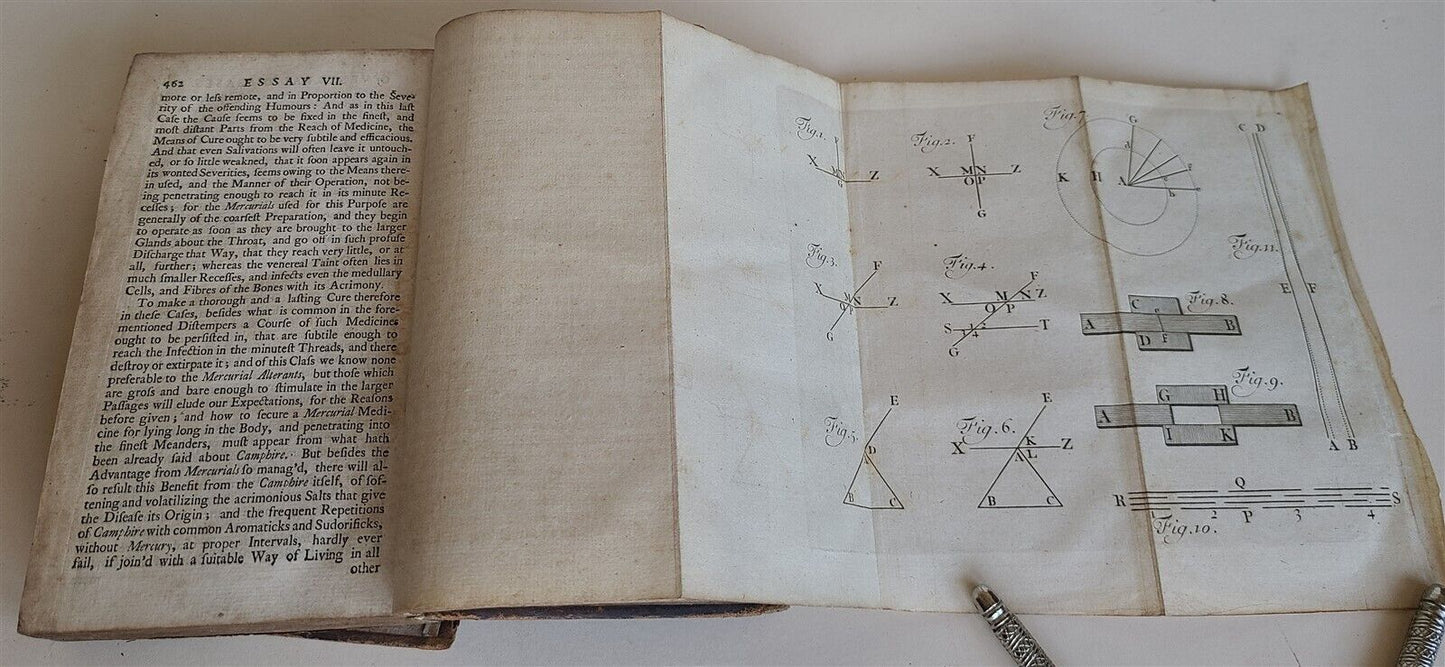 462 ESSAY VII.
more or leſs remote, and in Proportion to the Seve-
rity of the offending Humours: And as in this laſt
Caſe the Cauſe ſeems to be fixed in the fineſt, and
moſt diſtant Parts from the Reach of Medicine, the
Means of Cure ought to be very ſubtile and efficacious.
And that even Salivations will often leave it untouch-
ed, or ſo little weakned, that it ſoon appears again in
its wonted Severities, ſeems owing to the Means there-
in uſed, and the Manner of their Operation, not be-
ing penetrating enough to reach it in its minute Re-
ceſſes; for the Mercurials uſed for this Purpoſe are
generally of the coarſeſt Preparation, and they begin
to operate as ſoon as they are brought to the larger
Glands about the Throat, and go off in ſuch profuſe
Diſcharge that Way, that they reach very little, or at
all, further; whereas the venereal Taint often lies in
much ſmaller Receſſes, and infects even the medullary
Cells, and Fibres of the Bones with its Acrimony.
To make a thorough and a laſting Cure therefore
in theſe Caſes, beſides what is common in the fore-
mentioned Diſtempers a Courſe of ſuch Medicines
ought to be perſiſted in, that are ſubtile enough to
reach the Infection in the minuteſt Threads, and there
deſtroy or extirpate it; and of this Claſs we know none
preferable to the Mercurial Alterants, but thoſe which
are groſs and bare enough to ſtimulate in the larger
Paſſages will elude our Expectations, for the Reaſons
before given; and how to ſecure a Mercurial Medi-
cine for lying long in the Body, and penetrating into
the fineſt Meanders, muſt appear from what hath
been already ſaid about Camphire. But beſides the
Advantage from Mercurials ſo manag'd, there will al-
ſo reſult this Benefit from the Camphire itſelf, of ſof-
tening and volatilizing the acrimonious Salts that give
the Diſeaſe its Origin; and the frequent Repetitions
of Camphire with common Aromaticks and Sudorificks,
without Mercury, at proper Intervals, hardly ever
fail, if join'd with a ſuitable Way of Living in all
other
Fig.1.
F
X M N Z
G
Fig.2.
F
X M N Z
O P
G
Fig.7
G
d
K H A
b
C D
Fig.11.
E F
A B
Fig.3.
F
X M N Z
O P
G
Fig.4.
F
X M N Z
O P
S T
G
Fig.8.
C
A e B
D f
Fig.9.
G H
A B
I K
Fig.5.
E
D
B C
Fig.6.
E
X K Z
A L
B C
Q
R S
1 2 P 3 4
Fig.10.